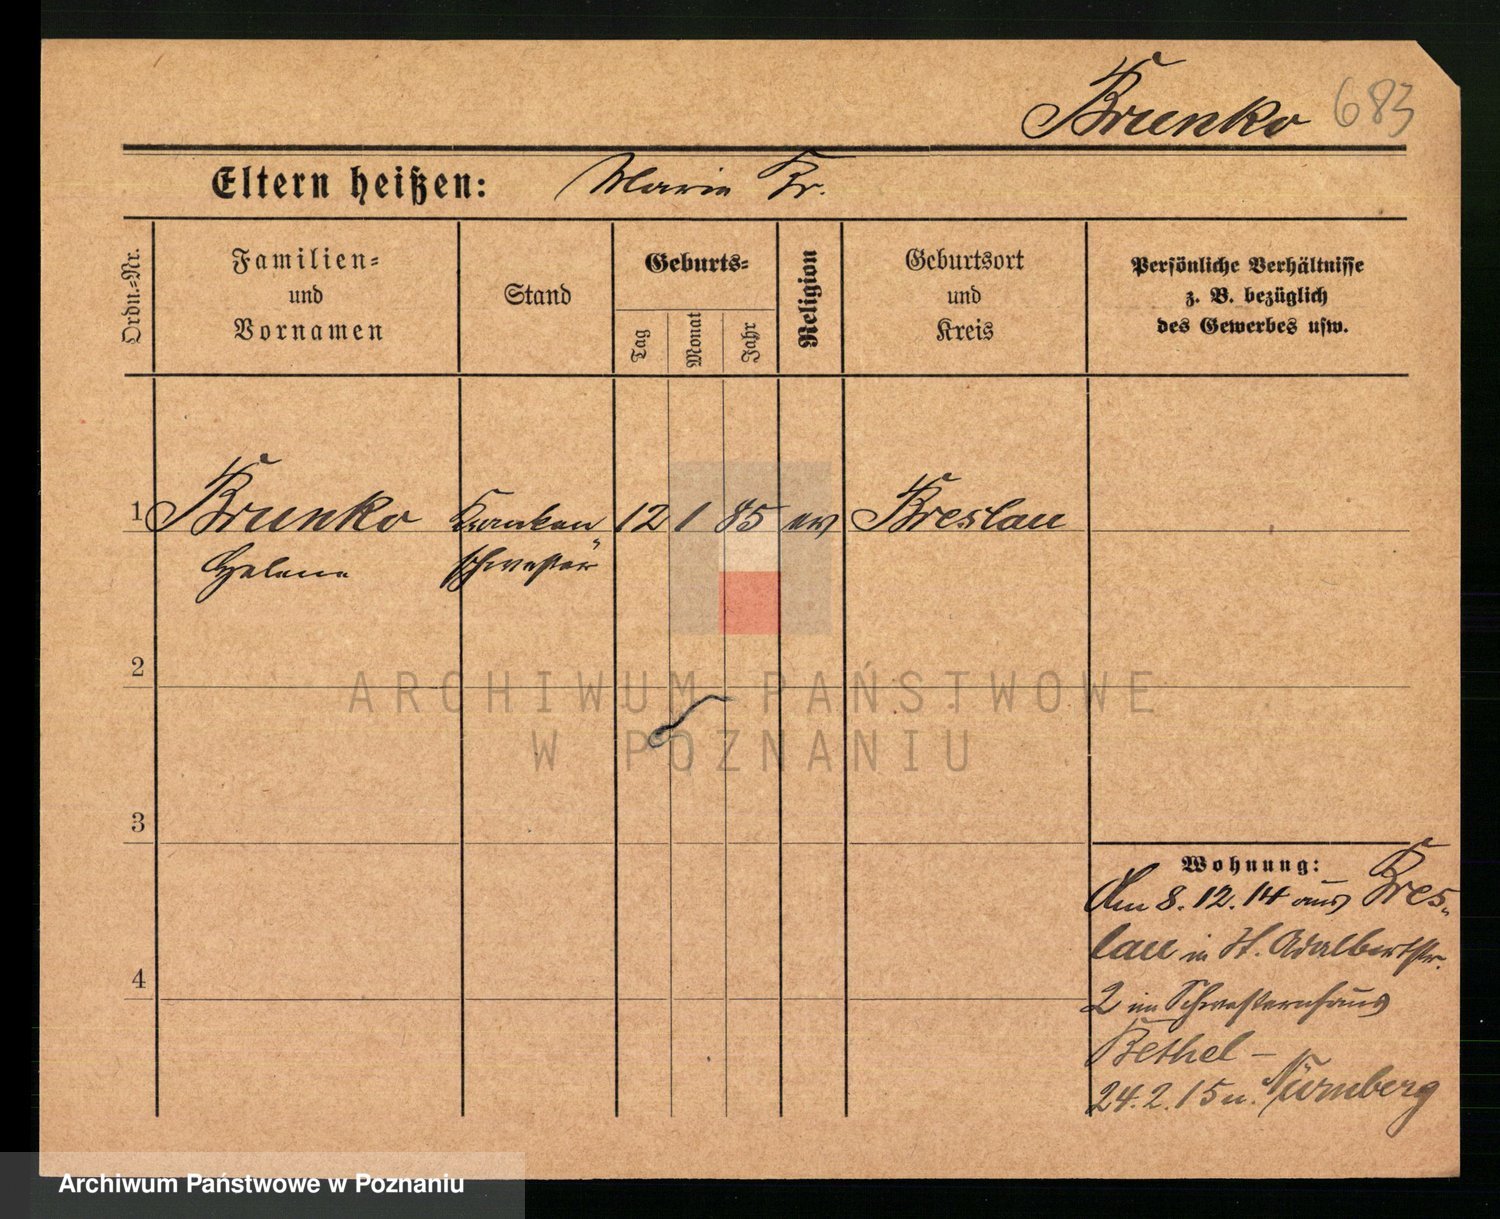 Brunko 683
Eltern heißen: Marie Br.
Ordn.-Nr.
Familien-
und
Vornamen
Stand
Geburts-
Tag
Monat
Jahr
Religion
Geburtsort
und
Kreis
Persönliche Verhältnisse
z. B. bezüglich
des Gewerbes usw.
1 Brunko Kranken 12 1 85 ev Breslau
Helene schwester
2
ARCHIWUM PAŃSTWOWE
W POZNANIU
3
Wohnung:
Am 8.12.14 aus Bres-
lau in St. Adalbertstr.
4
2 im Schwesternhaus
Bethel –
24.2.15 n. Nürnberg
Archiwum Państwowe w Poznaniu